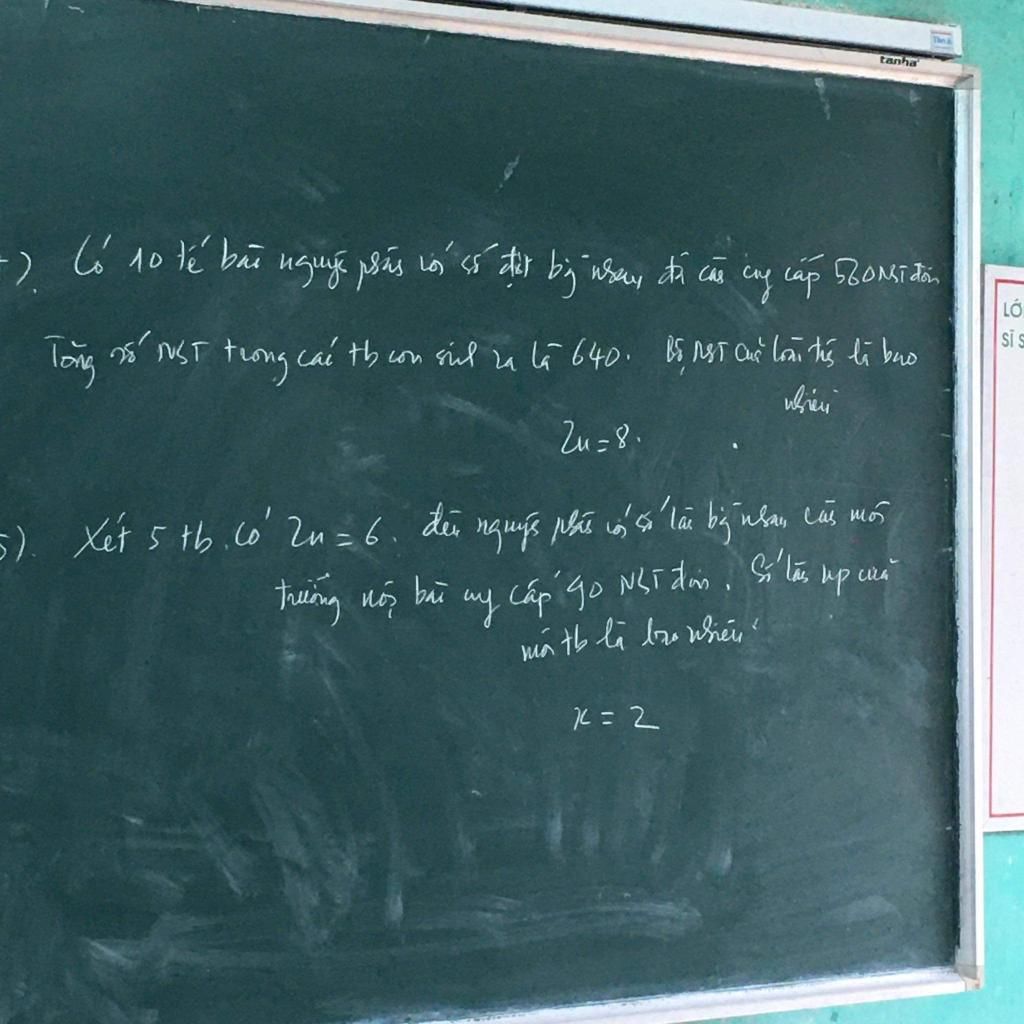 Tân Á
tanhà
). Có 10 tế bào nguyên phân với số đợt bằng nhau đã cần cung cấp 560 NST đơn
Tổng số NST trong các tb con sinh ra là 640. Bộ NST của loài trên là bao
nhiêu
2n = 8.
5). Xét 5 tb. có 2n = 6. đều nguyên phân với số lần bằng nhau cần môi
trường nội bào cung cấp 90 NST đơn. Số lần np của
mỗi tb là bao nhiêu
x = 2
LỚ
SĨ S